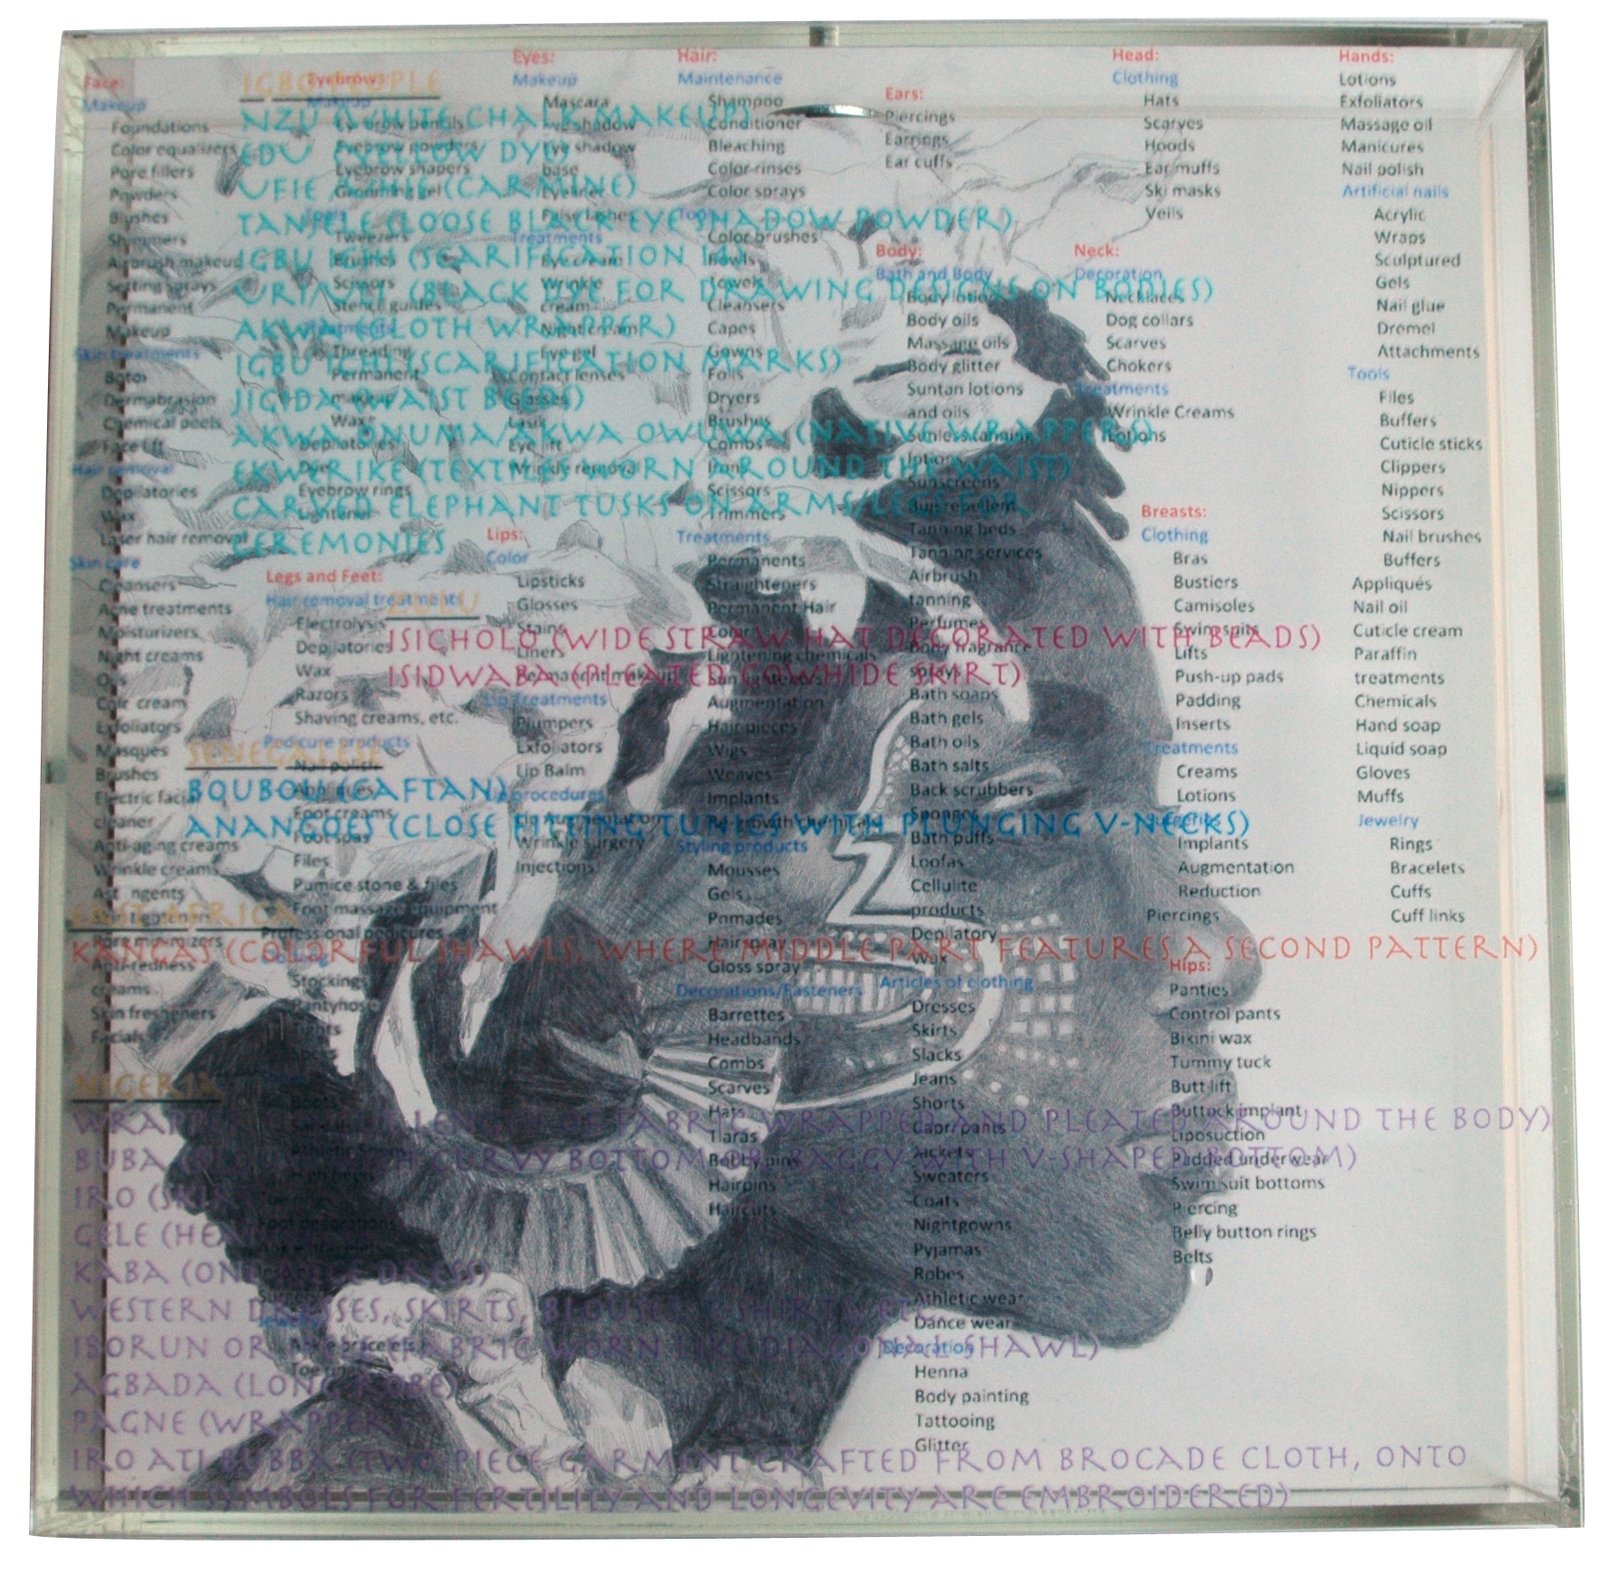 Face:
Makeup
Foundations
Color equalizers
Pore fillers
Powders
Blushes
Shimmers
Airbrush makeup
Setting sprays
Permanent
Makeup
Skin treatments
Botox
Dermabrasion
Chemical peels
Face lift
Hair removal
Depilatories
Wax
Laser hair removal
Skin care
Cleansers
Acne treatments
Moisturizers
Night creams
Oils
Color cream
Exfoliators
Masques
Brushes
Electric facial
cleaner
Anti-aging creams
Wrinkle creams
Astringents
Pore minimizers
Anti-redness
creams
Skin fresheners
Facials
Eyebrows:
Makeup
Eyebrow pencils
Eyebrow powders
Eyebrow shapers
Grooming gel
Tweezers
Brushes
Scissors
Stencil guides
Treatments
Threading
Permanent
makeup
Wax
Depilatories
Eyebrow rings
Legs and Feet:
Hair removal treatments
Electrolysis
Depilatories
Wax
Razors
Shaving creams, etc.
Pedicure products
Nail polish
Appliques
Foot creams
Foot spas
Files
Pumice stone & files
Foot massage equipment
Professional pedicures
Stockings
Pantyhose
Tights
Socks
Boots
Foot decorations
Ankle bracelets
Eyes:
Makeup
Mascara
Eye shadow
Eye shadow
base
Eyeliner
False lashes
Treatments
Eye cream
Wrinkle
cream
Night cream
Eye gel
Contact lenses
Glasses
Lasik
Eye lift
Wrinkle removal
Lips:
Color
Lipsticks
Glosses
Stains
Liners
Permanent makeup
Lip Treatments
Plumpers
Exfoliators
Lip Balm
procedures
Wrinkle surgery
Injections
Hair:
Maintenance
Shampoo
Conditioner
Bleaching
Color-rinses
Color sprays
Tools
Color brushes
Bowls
Towels
Cleansers
Capes
Gowns
Foils
Dryers
Brushes
Combs
Irons
Scissors
Trimmers
Treatments
Permanents
Straighteners
Permanent Hair
Color
Lightening chemicals
Sun lighteners
Augmentation
Hair pieces
Wigs
Weaves
Implants
Re-growth chemicals
Styling products
Mousses
Gels
Pomades
Hairspray
Gloss spray
Decorations/Fasteners
Barrettes
Headbands
Combs
Scarves
Hats
Tiaras
Bobby pins
Hairpins
Haircuts
Ears:
Piercings
Earrings
Ear cuffs
Body:
Bath and Body
Body lotions
Body oils
Massage oils
Body glitter
Suntan lotions
and oils
Sunless tanning
lotions
Sunscreens
Bug repellent
Tanning beds
Tanning services
Airbrush
tanning
Perfumes
Body fragrance
sprays
Bath soaps
Bath gels
Bath oils
Bath salts
Back scrubbers
Sponges
Bath puffs
Loofas
Cellulite
products
Depilatory
Wax
Articles of clothing
Dresses
Skirts
Slacks
Jeans
Shorts
Capri pants
Jackets
Sweaters
Coats
Nightgowns
Pyjamas
Robes
Athletic wear
Dance wear
Decoration
Henna
Body painting
Tattooing
Glitter
Head:
Clothing
Hats
Scarves
Hoods
Ear muffs
Ski masks
Veils
Neck:
Decoration
Necklaces
Dog collars
Scarves
Chokers
Treatments
Wrinkle Creams
Lotions
Breasts:
Clothing
Bras
Bustiers
Camisoles
Swimsuits
Lifts
Push-up pads
Padding
Inserts
Treatments
Creams
Lotions
Surgeries
Implants
Augmentation
Reduction
Piercings
Hips:
Panties
Control pants
Bikini wax
Tummy tuck
Butt lift
Buttock implant
Liposuction
Padded underwear
Swim suit bottoms
Piercing
Belly button rings
Belts
Hands:
Lotions
Exfoliators
Massage oil
Manicures
Nail polish
Artificial nails
Acrylic
Wraps
Sculptured
Gels
Nail glue
Dremel
Attachments
Tools
Files
Buffers
Cuticle sticks
Clippers
Nippers
Scissors
Nail brushes
Buffers
Appliqués
Nail oil
Cuticle cream
Paraffin
treatments
Chemicals
Hand soap
Liquid soap
Gloves
Muffs
Jewelry
Rings
Bracelets
Cuffs
Cuff links
IGBO PEOPLE
NZU (WHITE CHALK MAKEUP)
EDU (YELLOW DYE)
UFIE (CARMINE)
TANJELE (LOOSE BLACK EYE SHADOW POWDER)
IGBU ICHI (SCARIFICATION
(BLACK DYE FOR DRAWING DESIGNS ON BODIES)
AKWA (CLOTH WRAPPER)
IGBU ICHI (SCARIFICATION MARKS)
JIGIDA (WAIST BEADS)
AKWA ONUMA/AKWA (NATIVE WRAPPERS)
EKWERIKE (TEXTILES WORN AROUND THE WAIST)
CARVED ELEPHANT TUSKS ON ARMS/LEGS FOR
CEREMONIES
ZULU
ISICHOLO (WIDE STRAW HAT DECORATED WITH BEADS)
ISIDWABA (PLEATED COWHIDE SKIRT)
SENEGALESE
BOUBOU (CAFTAN)
ANANGOES (CLOSE FITTING TUNICS WITH PLUNGING V-NECKS)
EAST AFRICA
KANGAS (COLORFUL SHAWLS, WHERE MIDDLE PART FEATURES A SECOND PATTERN)
NIGERIA
WRAPPER LENGTH OF FABRIC WRAPPED AND PLEATED AROUND THE BODY)
BUBA WITH CURVY BOTTOM OR BAGGY WITH V-SHAPED BOTTOM)
IRO (SKIRT)
GELE
KABA (ONE PIECE DRESS)
WESTERN DRESSES, SKIRTS, BLOUSES, T-SHIRTS, ETC.
IBORUN OR (FABRIC WORN LIKE DIAGONAL SHAWL)
AGBADA (LONG ROBE)
PAGNE (WRAPPER)
IRO ATI BUBBA (TWO-PIECE GARMENT CRAFTED FROM BROCADE CLOTH, ONTO
WHICH SYMBOLS FOR FERTILITY AND LONGEVITY ARE EMBROIDERED)